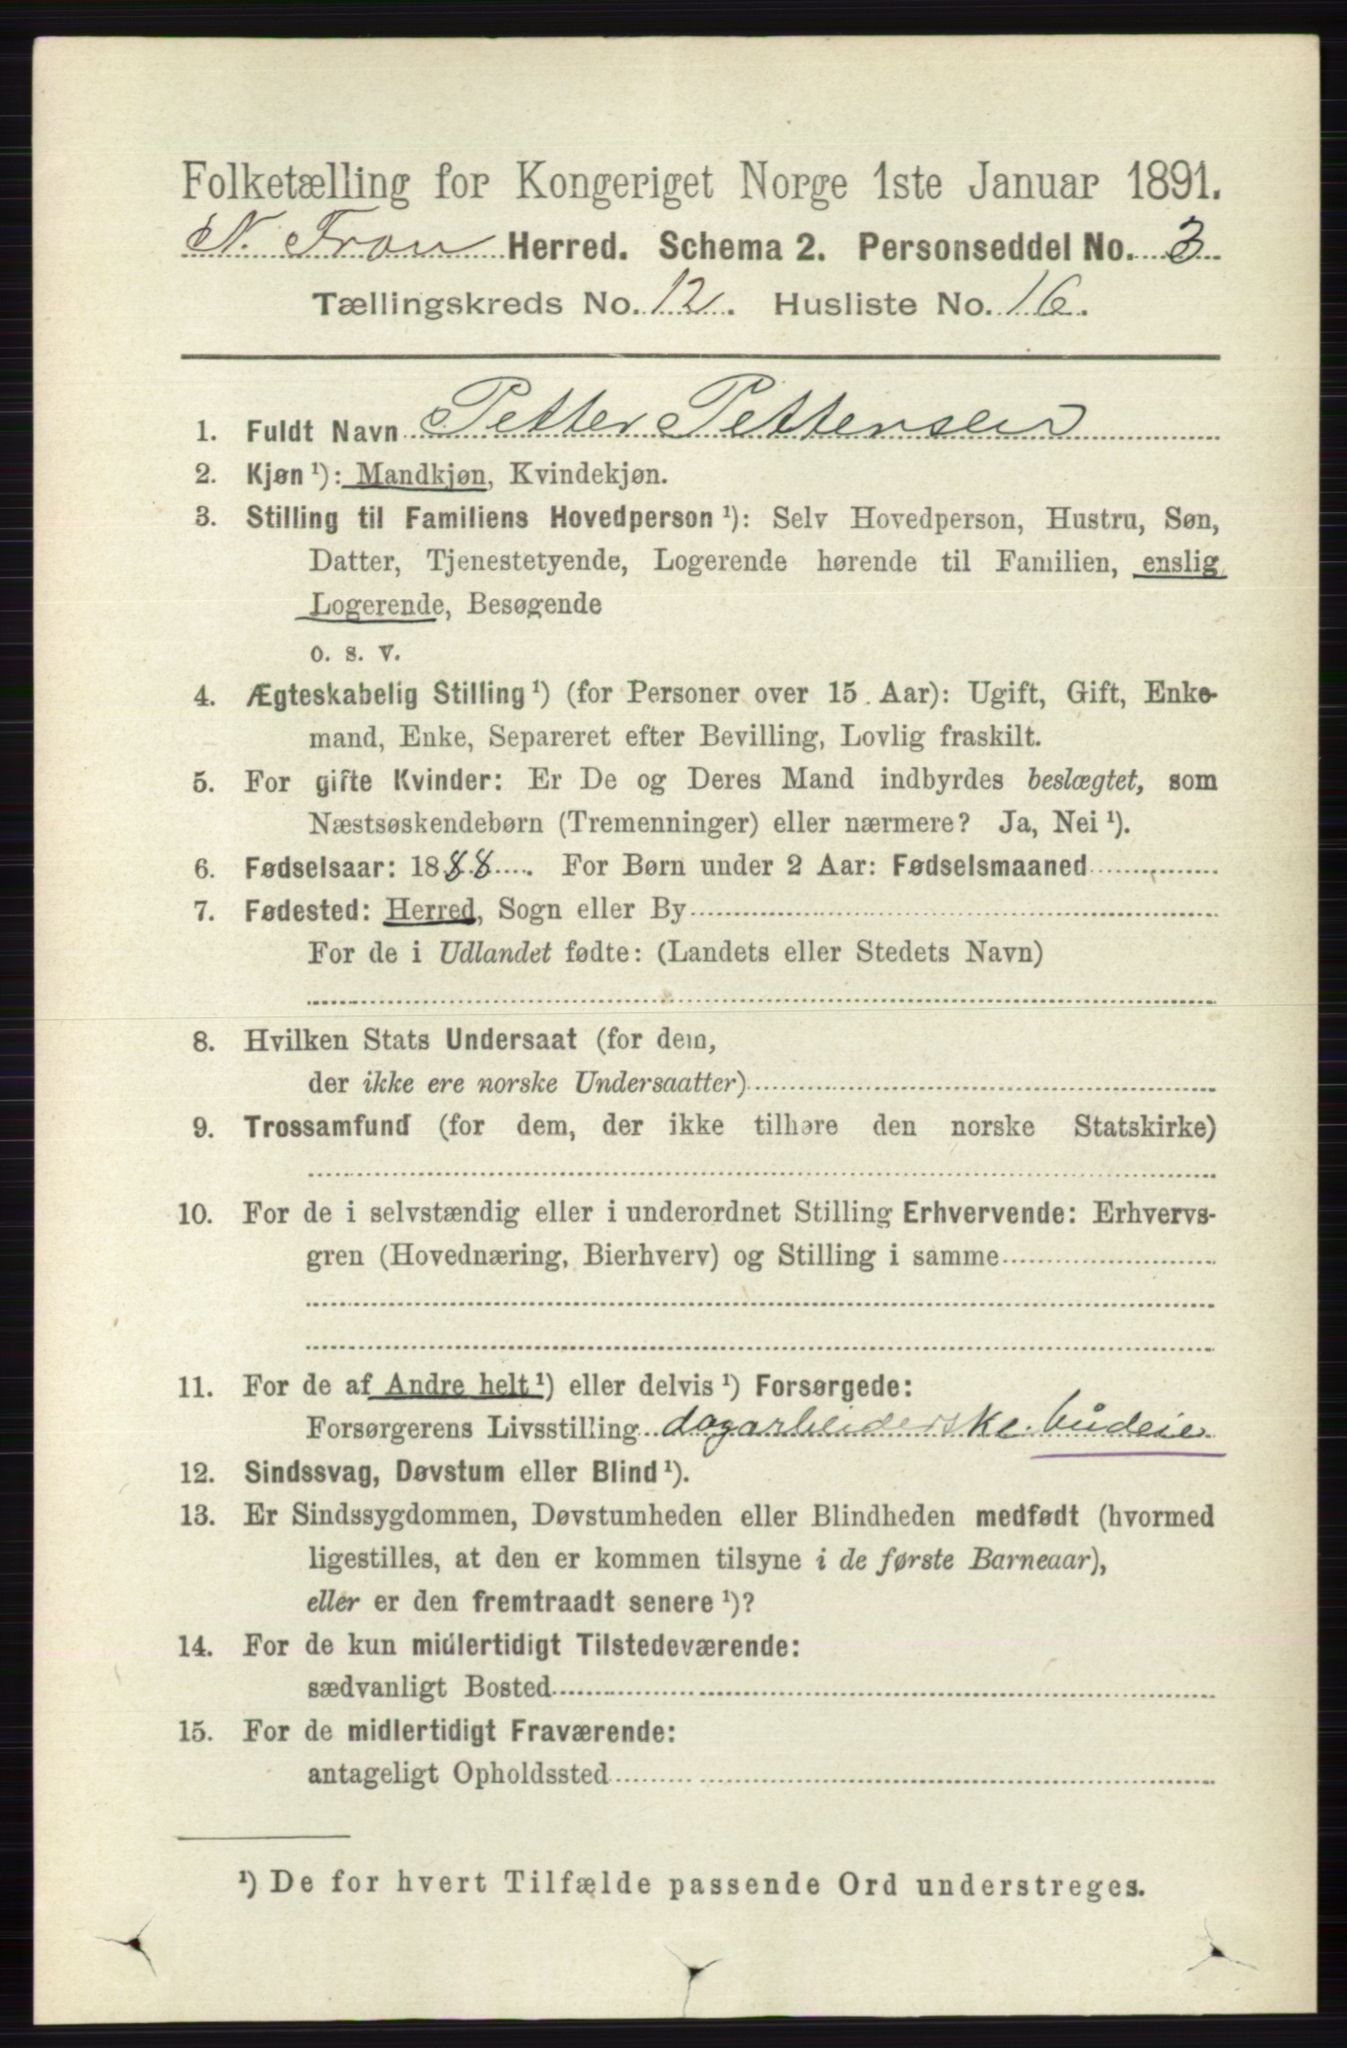 Folketælling for Kongeriget Norge 1ste Januar 1891.
N. Fron Herred. Schema 2. Personseddel No. 3
Tællingskreds No. 12. Husliste No. 16.
1. Fuldt Navn Petter Pettersen
2. Kjøn¹): Mandkjøn, Kvindekjøn.
3. Stilling til Familiens Hovedperson¹): Selv Hovedperson, Hustru, Søn,
Datter, Tjenestetyende, Logerende hørende til Familien, enslig
Logerende, Besøgende
o. s. v.
4. Ægteskabelig Stilling¹) (for Personer over 15 Aar): Ugift, Gift, Enke-
mand, Enke, Separeret efter Bevilling, Lovlig fraskilt.
5. For gifte Kvinder: Er De og Deres Mand indbyrdes beslægtet, som
Næstsøskendebørn (Tremenninger) eller nærmere? Ja, Nei¹).
6. Fødselsaar: 1888. For Børn under 2 Aar: Fødselsmaaned
7. Fødested: Herred, Sogn eller By
For de i Udlandet fødte: (Landets eller Stedets Navn)
8. Hvilken Stats Undersaat (for dem,
der ikke ere norske Undersaatter)
9. Trossamfund (for dem, der ikke tilhøre den norske Statskirke)
10. For de i selvstændig eller i underordnet Stilling Erhvervende: Erhvervs-
gren (Hovednæring, Bierhverv) og Stilling i samme
11. For de af Andre helt¹) eller delvis¹) Forsørgede:
Forsørgerens Livsstilling dagarbeiderske. budeie
12. Sindssvag, Døvstum eller Blind¹).
13. Er Sindssygdommen, Døvstumheden eller Blindheden medfødt (hvormed
ligestilles, at den er kommen tilsyne i de første Barneaar),
eller er den fremtraadt senere¹)?
14. For de kun midlertidigt Tilstedeværende:
sædvanligt Bosted
15. For de midlertidigt Fraværende:
antageligt Opholdssted
¹) De for hvert Tilfælde passende Ord understreges.